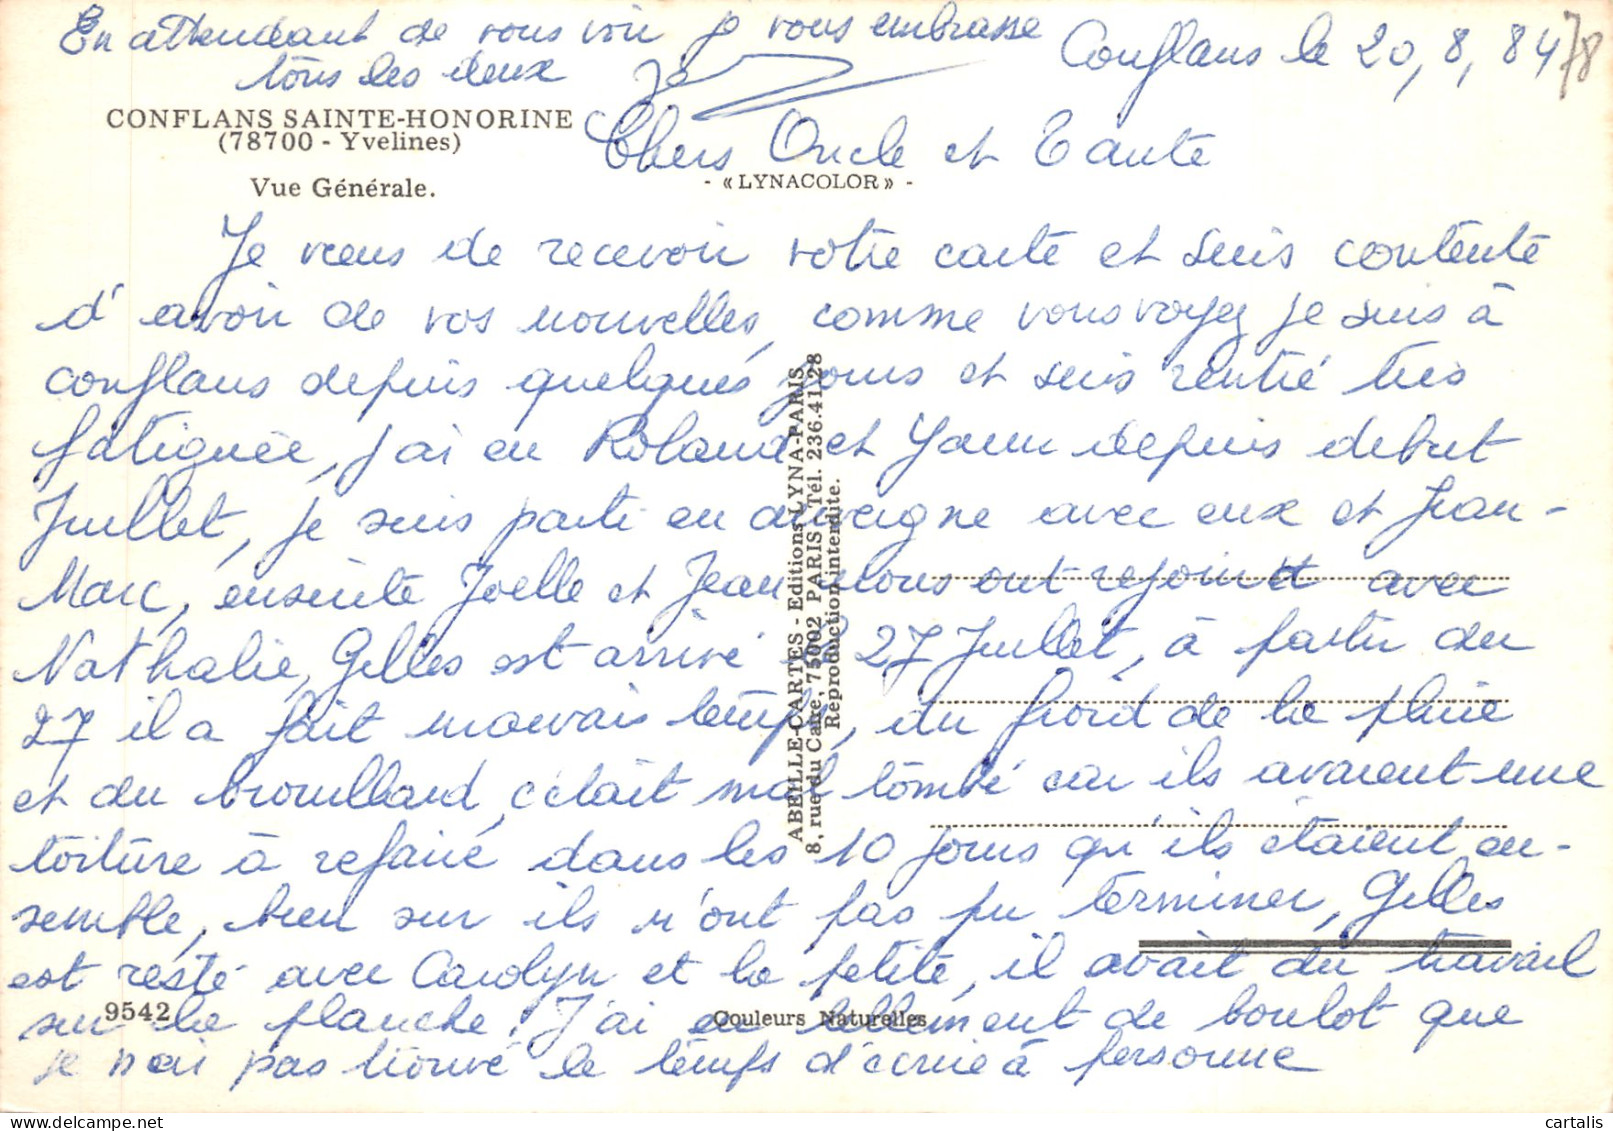 En attendant de vous voir je vous embrasse
tous les deux
Conflans le 20, 8, 84
78
CONFLANS SAINTE-HONORINE
(78700 - Yvelines)
Vue Générale.
Chers Oncle et Tante
- «LYNACOLOR» -
Je viens de recevoir votre carte et suis contente
d'avoir de vos nouvelles, comme vous voyez je suis à
conflans depuis quelques jours et suis rentré très
fatiguée, j'ai eu Roland et Yann depuis debut
Juillet, je suis parti en auvergne avec eux et Jean-
Marc, ensuite Joelle et Jean nous ont rejoint avec
Nathalie, Gilles est arrivé le 27 Juillet, à partir du
27 il a fait mauvais temps, du froid de la pluie
et du brouillard, c'était mal tombé car ils avaient une
toiture à refaire dans les 10 jours qu'ils étaient en-
semble, bien sur ils n'ont pas pu terminer, Gilles
est resté avec Carolyn et la petite, il avait du travail
sur la planche. J'ai eu tellement de boulot que
je n'ai pas trouvé le temps d'écrire à personne
ABEILLE-CARTES - Editions LYNA-PARIS
8, rue du Caire, 75002 PARIS Tél. 236.41.28
Reproduction interdite.
9542
Couleurs Naturelles
cartalis
delcampe.net